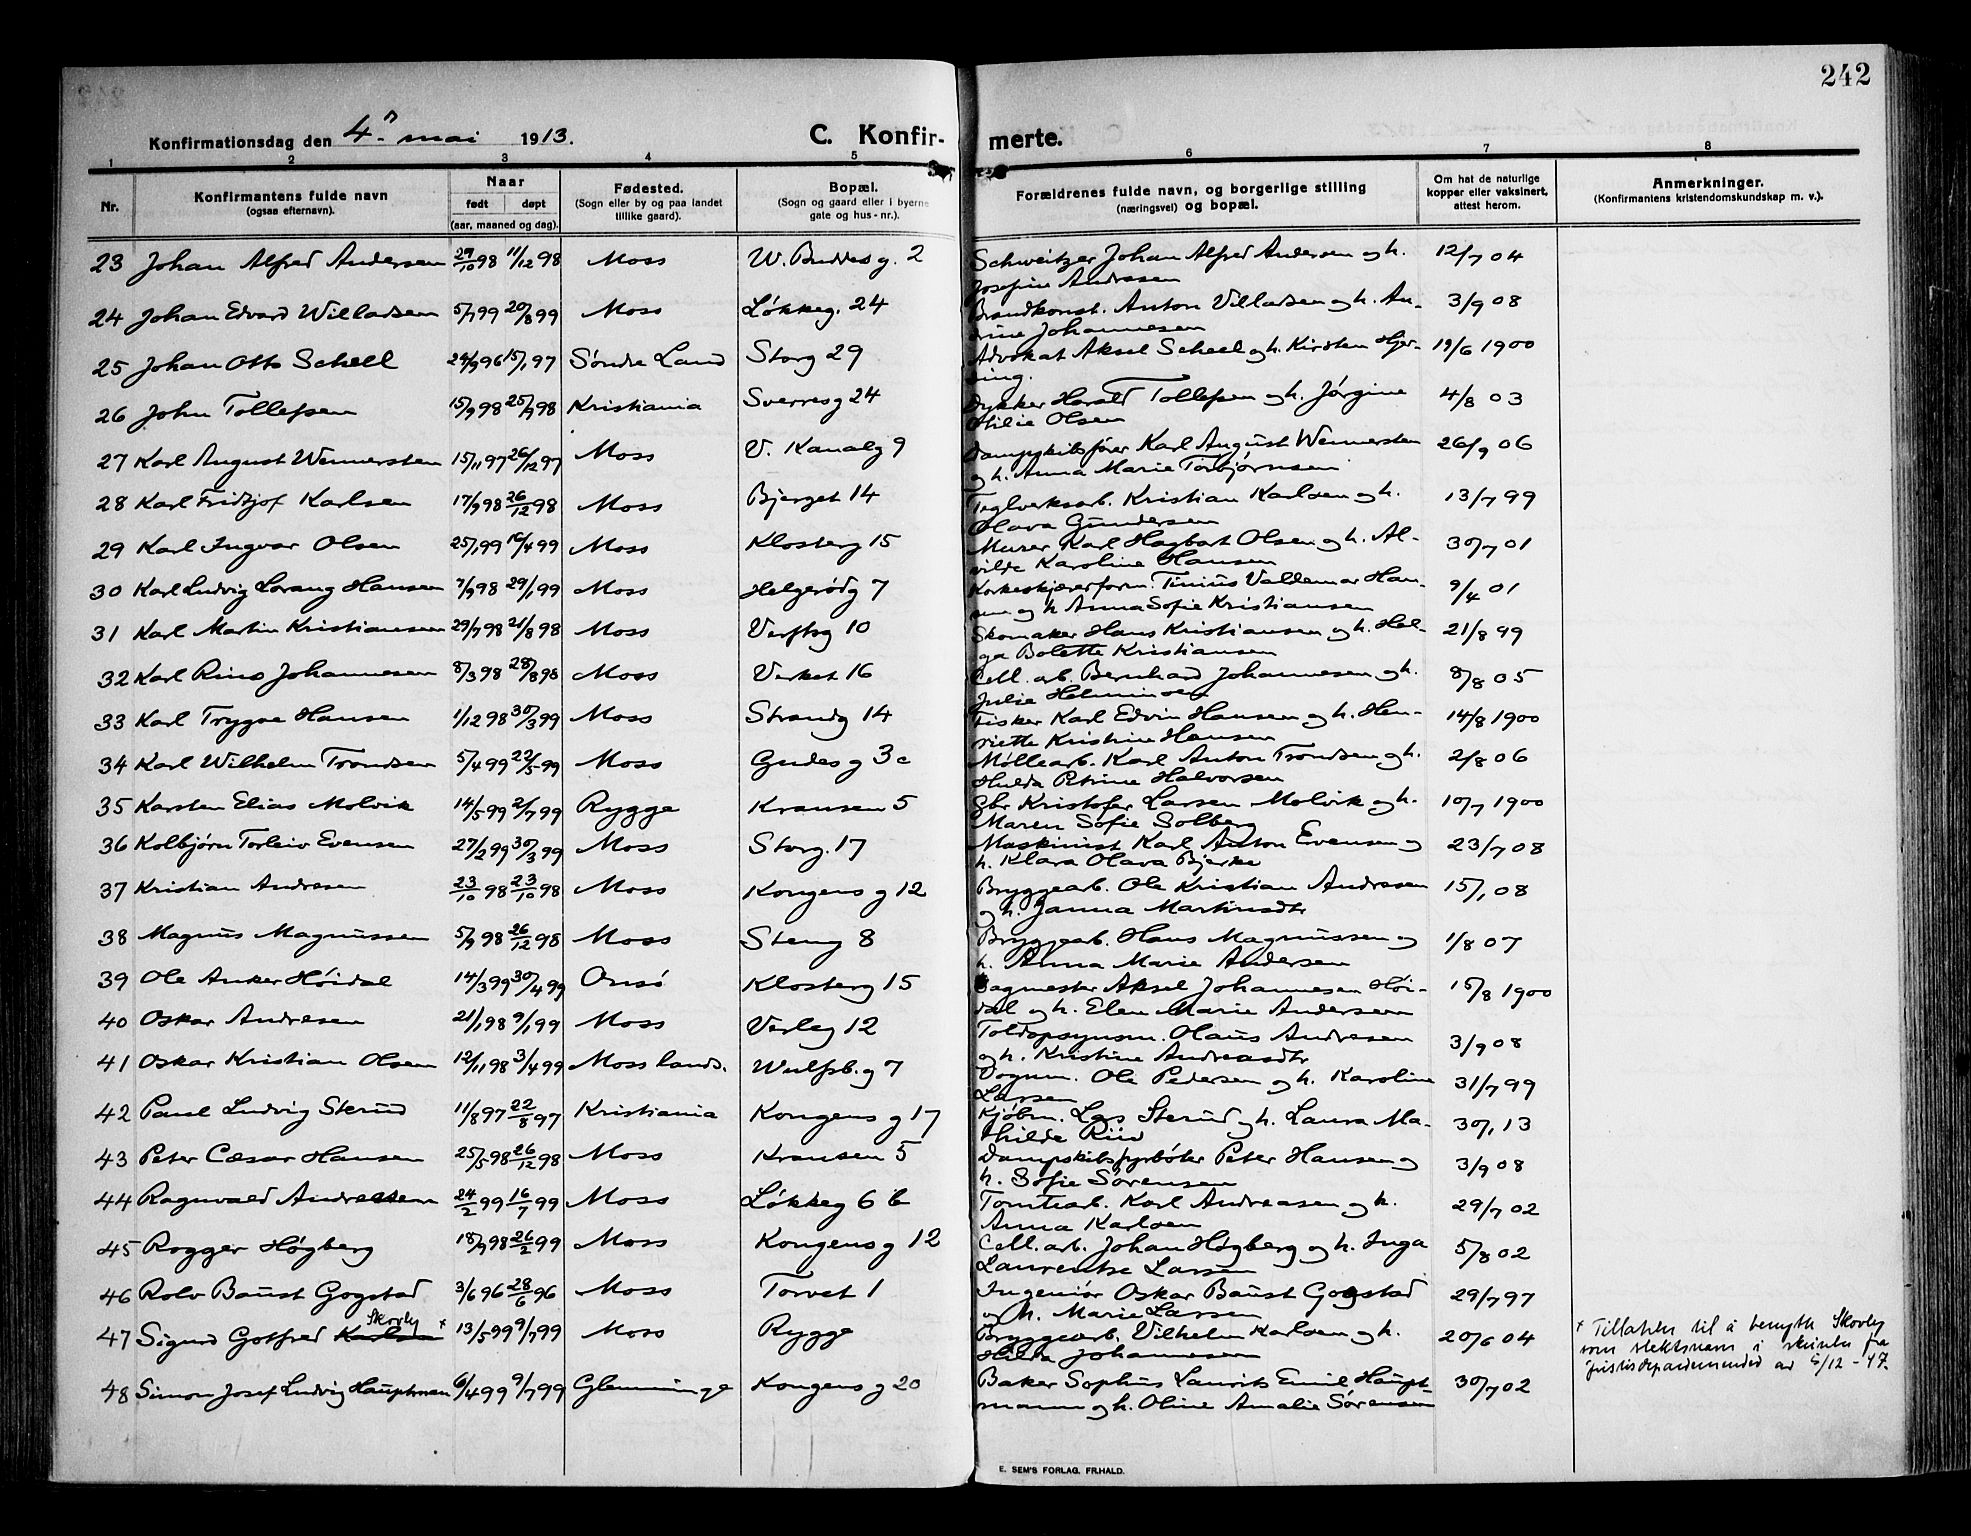 242
Konfirmationsdag den 4. mai 1913.
C. Konfir-
merte.
1 2 3 4 5 6 7 8
Nr.
Konfirmantens fulde navn
(ogsaa efternavn).
Naar
født døpt
(aar, maaned og dag).
Fødested.
(Sogn eller by og paa landet
tillike gaard).
Bopæl.
(Sogn og gaard eller i byerne
gate og hus-nr.).
Forældrenes fulde navn, og borgerlige stilling
(næringsvei) og bopæl.
Om hat de naturlige
kopper eller vaksinert,
attest herom.
Anmerkninger.
(Konfirmantens kristendomskundskap m. v.).
23 Johan Alfred Andersen 29/10 98 11/12 98 Moss W. Buddes g. 2 Schweitzer Johan Alfred Andersen og h. 12/7 04
Josefine Andressen
24 Johan Edvard Willadsen 5/7 99 20/8 99 Moss Løkkeg. 24 Brandkonst. Anton Villadsen og h. An- 3/9 08
drine Johannesen
25 Johan Otto Scheel 24/9 96 15/1 97 Søndre Land Storg 29 Advokat Aksel Scheel og h. Kirsten Hjer- 19/6 1900
ing.
26 John Tollefsen 15/9 98 25/9 98 Kristiania Sverresg 24 Dykker Harald Tollefsen og h. Jørgine 4/8 03
Otilie Olsen
27 Karl August Wennersten 15/11 97 26/12 97 Moss V. Kanalg 9 Dampskibsfører Karl August Wennersten 26/9 06
og h. Anna Marie Torbjørnsen
28 Karl Fridtjof Karlsen 17/9 98 26/12 98 Moss Bjerget 14 Teglverksarb. Kristian Karlsen og h. 13/7 99
Olava Gundersen
29 Karl Ingvar Olsen 25/1 99 16/4 99 Moss Klosterg 15 Murer Karl Hagbart Olsen og h. Al- 30/7 01
vilde Karoline Hansen
30 Karl Ludvig Lorang Hansen 7/9 98 29/1 99 Moss Helgerødg 7 Korkeskjærerform. Tinius Valdemar Han- 9/4 01
sen og h Anna Sofie Kristiansen
31 Karl Martin Kristiansen 29/7 98 21/8 98 Moss Verftsg 10 Skomaker Hans Kristiansen og h. Hel- 21/8 99
ga Bolette Kristiansen
32 Karl Rino Johannesen 8/3 98 28/8 98 Moss Verket 16 Cell. arb. Bernhard Johannesen og h. 8/8 05
Julie
33 Karl Trygve Hansen 1/12 98 30/3 99 Moss Strandg 14 Fisker Karl Edvin Hansen og h. Hen- 14/8 1900
riette Kristine Hansen
34 Karl Wilhelm Trondsen 5/4 99 22/5 99 Moss Gudes g 3c Møllearb. Karl Anton Trondsen og h. 2/8 06
Hulda Petrine Halvorsen
35 Karsten Elias Molvik 14/5 99 2/7 99 Rygge Kransen 5 Gbr Kristofer Larsen Molvik og h. 10/7 1900
Maren Sofie Solberg
36 Kolbjørn Torleiv Evensen 27/2 99 30/3 99 Moss Storg. 17 Maskinist Karl Anton Evensen og 23/7 08
h. Klara Olava Bjerke
37 Kristian Andresen 23/10 98 23/10 98 Moss Kongens g 12 Bryggearb. Ole Kristian Andresen 15/1 08
og h. Janna Martinsdtr
38 Magnus Magnussen 5/9 98 26/12 98 Moss Steng 8 Bryggearb. Hans Magnussen og 1/8 07
h. Anna Marie Andersen
39 Ole Anker Høidal 14/3 99 30/4 99 Onsø Klosterg 15 Sagmester Aksel Johannesen Høi- 15/8 1900
dal og h. Elen Marie Andersen
40 Oskar Andresen 21/1 98 9/1 99 Moss Verleg 12 Toldopsynsm. Olaus Andresen 3/9 08
og h. Kristine Andreasdtr
41 Oskar Kristian Olsen 12/11 98 3/4 99 Moss lands. Wulfsb.g 7 Vognm. Ole Pedersen og h. Karoline 31/7 99
Larsen
42 Paul Ludvig Sterud 11/8 97 22/8 97 Kristiania Kongens g 17 Kjøbm. Lars Sterud og h. Laura Ma- 30/1 13
thilde Riis
43 Peter Cæsar Hansen 25/5 98 26/12 98 Moss Kransen 5 Dampskibsfyrbøter Peter Hansen og 3/9 08
h. Sofie Sørensen
44 Ragnvald Andreassen 24/2 99 16/7 99 Moss Løkkeg 6 b Tomtearb. Karl Andreasen og h. 29/7 02
Anna Karlsen
45 Rogger Høgberg 18/9 98 26/2 99 Moss Kongens g 12 Cell. arb. Johan Høgberg og h. Inga 5/8 02
Laurentse Larsen
46 Rolv Baust Gogstad 3/6 96 28/6 96 Moss Torvet 1 Ingeniør Oskar Baust Gogstad 29/7 97
og h. Marie Larsen
47 Sigurd Gotfred Karlsen Skovly × 13/5 99 9/7 99 Moss Rygge Bryggearb. Vilhelm Karlsen og h. 20/6 04
Hilda Johannesen
× Tillatelse til å benytte Skovly
som slektsnavn i skriv fra
Justisdepartementet av 5/12-47.
48 Simon Josef Ludvig Hauptman 6/4 99 9/7 99 Glemminge Kongens g 20 Baker Sophus Laurits Emil Haupt- 30/7 02
mann og h. Oline Amalie Sørensen
E. SEM'S FORLAG, FR.HALD.